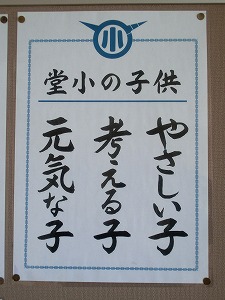 小
堂小の子供
やさしい子
考える子
元気な子